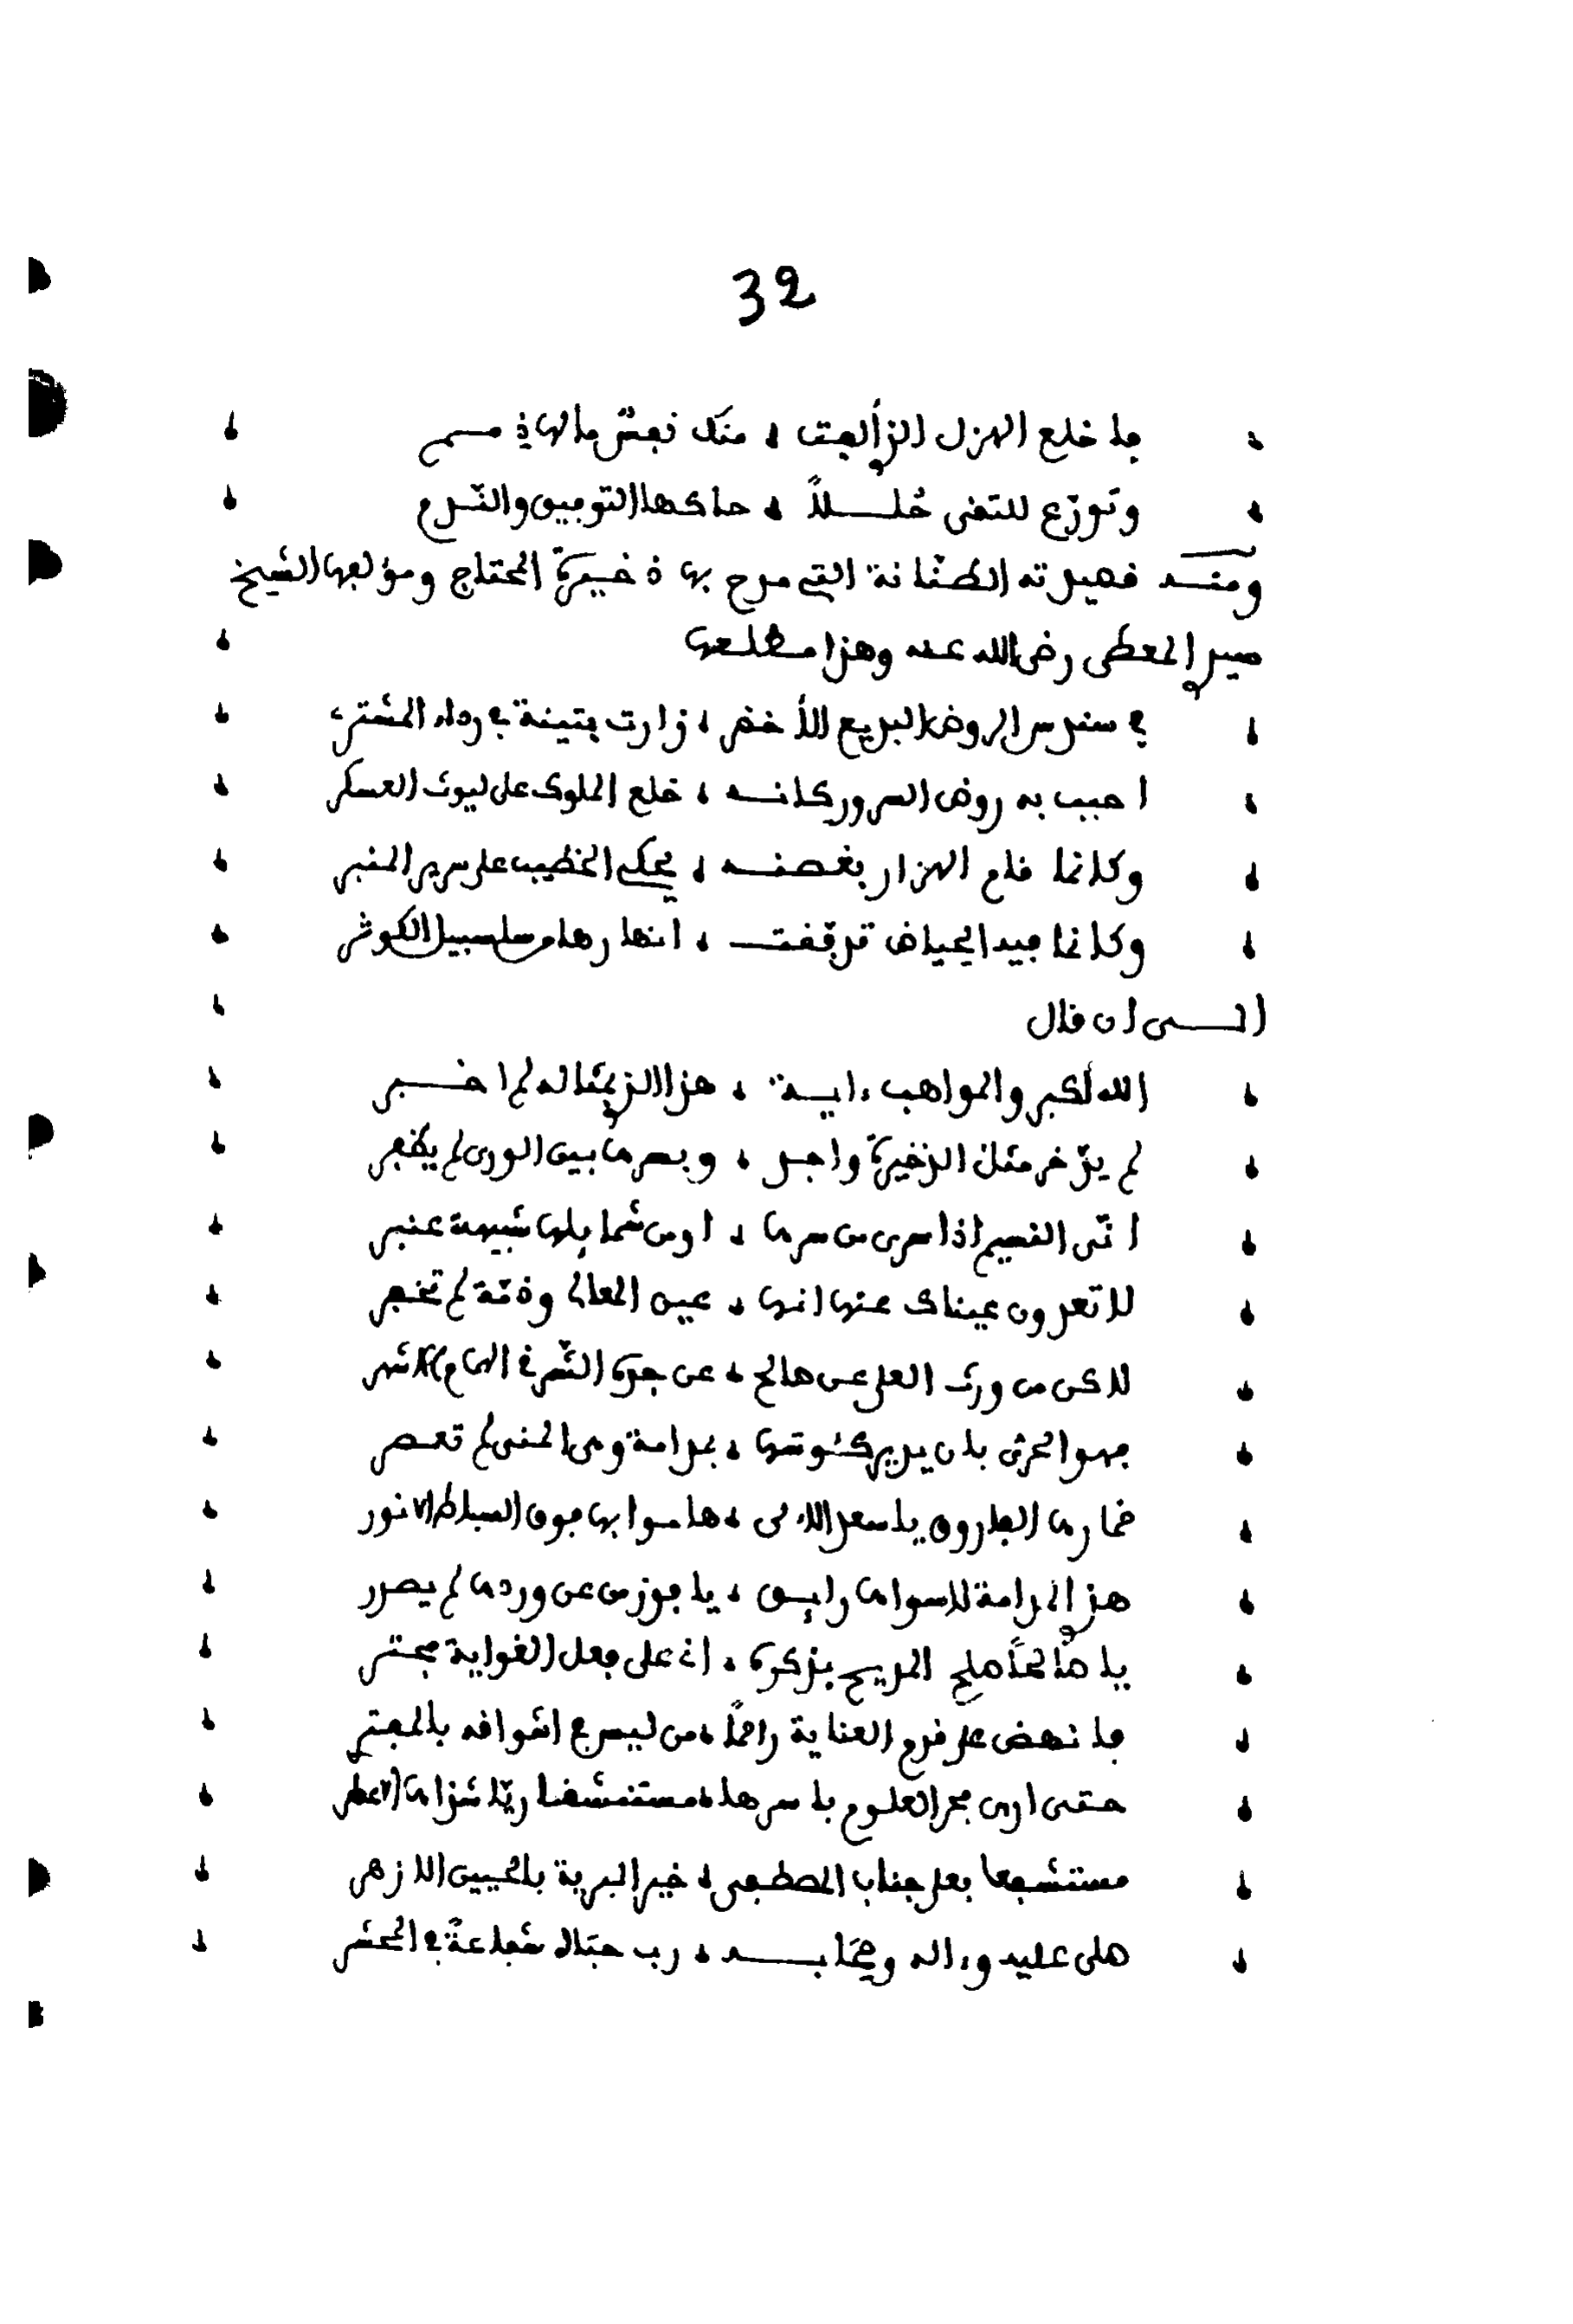 32
فاخلع الهزل الذي ألفت ، منك نفس مالها في مسم
وتورّع للتقى حُلــلاً ، حاكها التوفيق والنّدم
ومنــه قصيدته الطنّانة التي مدح بها ذخيرة المحتاج ومؤلفها الشيخ
سيدي المعطى رضي الله عنه وهذا مطلعها
في سندس الروض البديع الأخضر ، زارت بثينة في رداء المشتري
احبب به روض السرور كانــه ، خلع الملوك على ليوث العسكر
وكانما قام الهزار بغصنــه ، يحكي الخطيب على سرير المنبر
وكانما فيه الحياض ترقّقت ، انهارها من سلسبيل الكوثر
الــى ان قال
الله أكبر والمواهب ءايــة ، هذا الذي بمثاله لم اخــبر
لم يدّخر مثل الذخيرة واجد ، وبسرها بين الورى لم يظفر
انّى النسيم اذا سرى من سرها ، او من شمايلها شبيهة عنبر
لا تعدون عيناك عنها انها ، عين المعالي وذمّة لم تخفر
لاكن من ورث العلى عن صالح ، عن جده الشرقي الهمام الاشهر
فهو الحري بان يدير كئوسها ، بمدامة ومن المنى لم تعصر
خمارها الفاروق يا سعد الالى ، هاموا بها فوق البساط الانور
هذي المدامة لا سواها رايق ، يا فوز من عن وردها لم يصدر
يا صالحاً صلح المديح بذكره ، اني على فعل الغواية مجتر
فانهض على قدم العناية راحماً ، من ليس في اشواقه بالمفتري
حتى ارى بحر العلوم باسرها ، مستنشقا ريّا شذاها الاعطر
مستشفعا بعلى جناب المصطفى ، خير البرية بالجبين الازهر
صلى عليه وءاله وصحابــه ، رب حباه شفاعة في المحشر